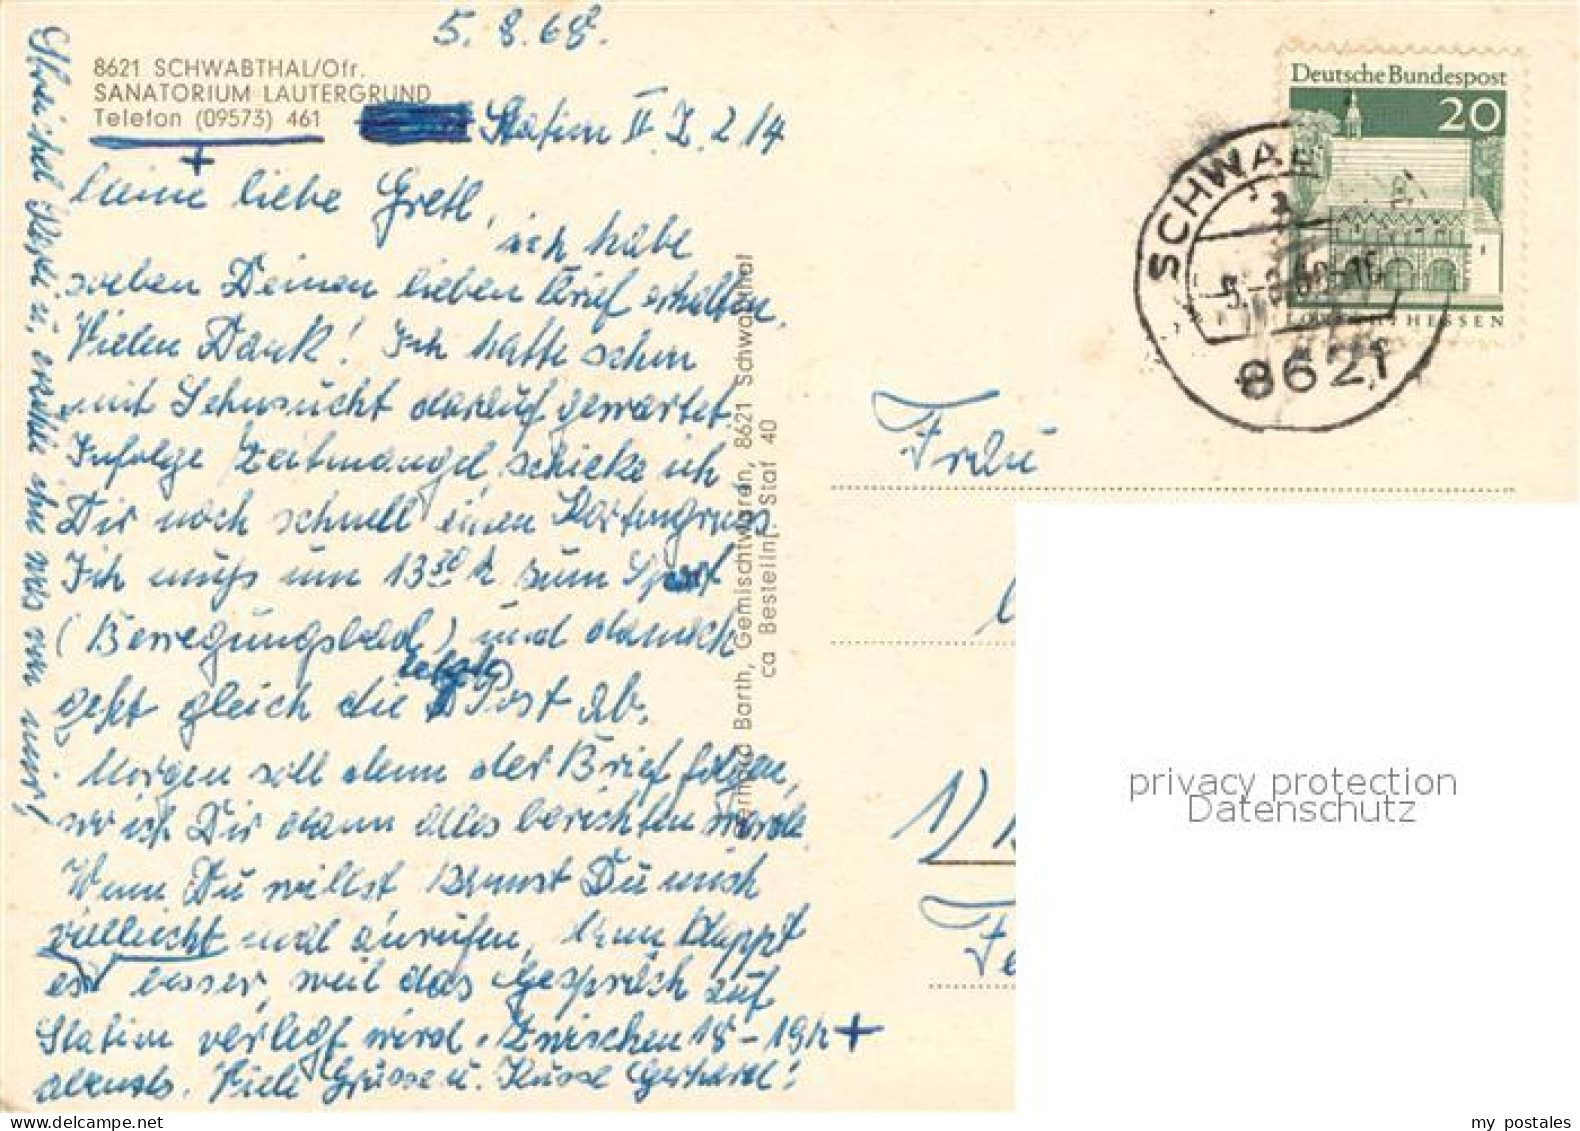 5. 8. 68.
8621 SCHWABTHAL/Ofr.
SANATORIUM LAUTERGRUND
Telefon (09573) 461
Station II. Z. 214
+
Meine liebe Gretl,
ich habe
soeben Deinen lieben Brief erhalten.
Vielen Dank! Ich hatte schon
mit Sehnsucht darauf gewartet.
Infolge Zeitmangel schicke ich
Dir noch schnell einen Kartengruss.
Ich muß um 13³⁰ h zum Sport
(Bewegungsbad) und danach
geht gleich die letzte Post ab.
Morgen soll dann der Brief folgen,
wo ich Dir dann alles berichten werde.
Wenn Du willst kannst Du mich
vielleicht mal anrufen, dann klappt
es besser, weil das Gespräch auf
Station verlegt wird. Zwischen 18 – 19 h +
abends. Viele Grüsse u. Küsse Gerhard!
u. erzähle ihr was von mir!
Hermann Barth, Gemischtwaren, 8621 Schwabthal
ca Bestellnr. Staf 40
Deutsche Bundespost
20
HESSEN
SCHWAB
8621
Frau
1)
privacy protection
Datenschutz
my postales